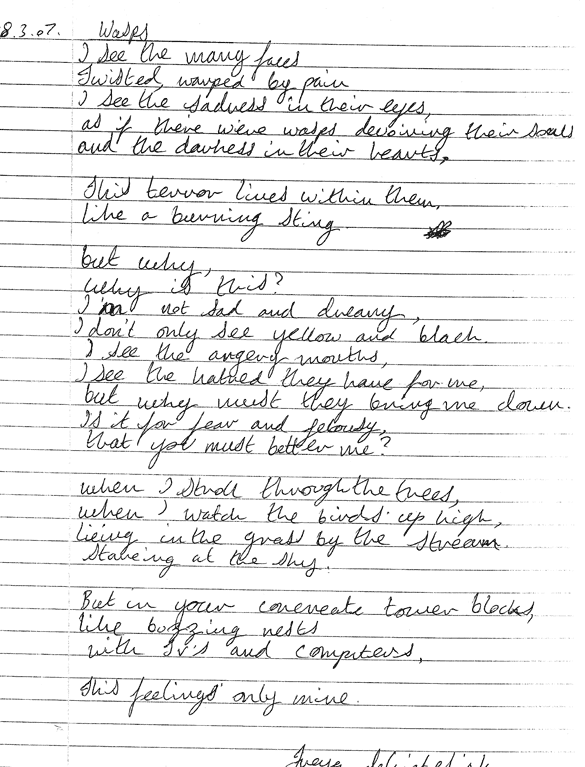 8.3.07. Wasps
I see the many faces
Twisted, warped by pain
I see the sadness in their eyes,
as if there were wasps devoiring their souls
and the darkness in their hearts,
This terror lives within them,
like a burning sting
but why,
why is this?
I'm not sad and dreary,
I don't only see yellow and black.
I see the angery mouths,
I see the hatred they have for me,
but why must they bring me down.
Is it for fear and jelousy,
that you must better me?
when I stroll through the trees,
when I watch the birds up high,
lieing in the grass by the stream.
Stareing at the sky.
But in your concreate tower blocks,
like buzzing nests
with Tv's and computers,
This feelings only mine.